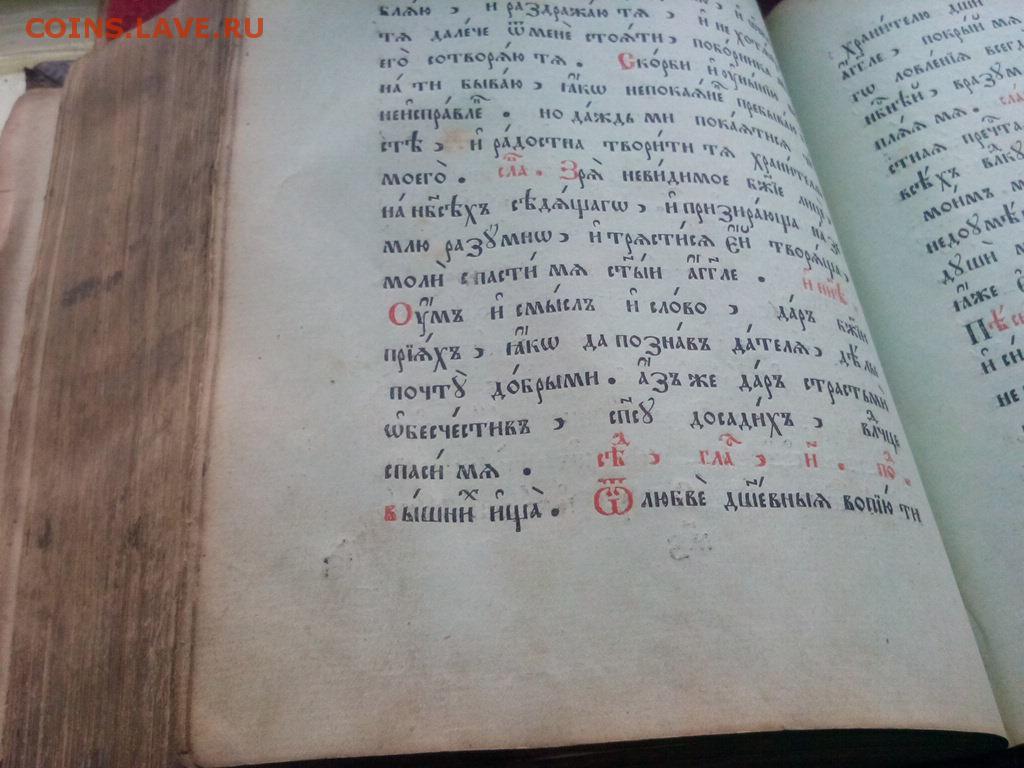 COINS.LAVE.RU
влѧ́ю , и҆ раздража́ю тѧ ,
тѧ̀ дале́че ѿ менѐ стоѧ́ти , побо́рника
его̀ сотворѧ́ю тѧ . Ско́рби и҆ оуны́нїи
на́ ти быва́ю , ꙗ҆́кѡ непокаѧ́нне пребыва́ю
неи҆спра́вле . но да́ждь ми пока́ѧтисѧ
стѣ , и҆ ра́достна твори́ти тѧ храни́телѧ
моего̀ . сла . Зрѧ̀ неви́димое бж҃їе лицѐ ,
на́ нб҃сѣхъ сѣдѧ́щагѡ , и҆ призира́юща на зе
млю разꙋмнѡ , и҆ трѧсти́сѧ е҆́й творѧ́ща ,
моли̑ спасти́ мѧ ст҃ы́и а҆́гг҃ле . и҆ нн҃ѣ .
Оу҆́мъ и҆ смы́слъ и҆ сло́во , да́ръ бж҃їи
прїѧ́хъ , ꙗ҆́кѡ да позна́въ да́телѧ , дѣ́лы
почтꙋ̀ до́брыми . а҆́зъ же да́ръ страстьмѝ
ѡ҆бесче́стивъ , сп҃сꙋ досади́хъ , влⷣчце
спаси́ мѧ . сѣⷣ , глаⷭ , и҃ . поⷣ .
вы́шнихъ и҆ща̀ . Ѿ любвѐ дш҃е́вныѧ вопїю́ ти
храни́телю дш҃и
а҆́гг҃ле , покры́й мѧ
гѡ ловле́нїѧ всегда
вразꙋм
плѧ́ѧ мѧ . сла
стнаѧ преч҃та
всѣ́хъ влⷣкꙋ
мои́мъ м
недоꙋмѣ
дꙋшѝ
ꙗ҆́же
Пѣсн
и҆ сн
не